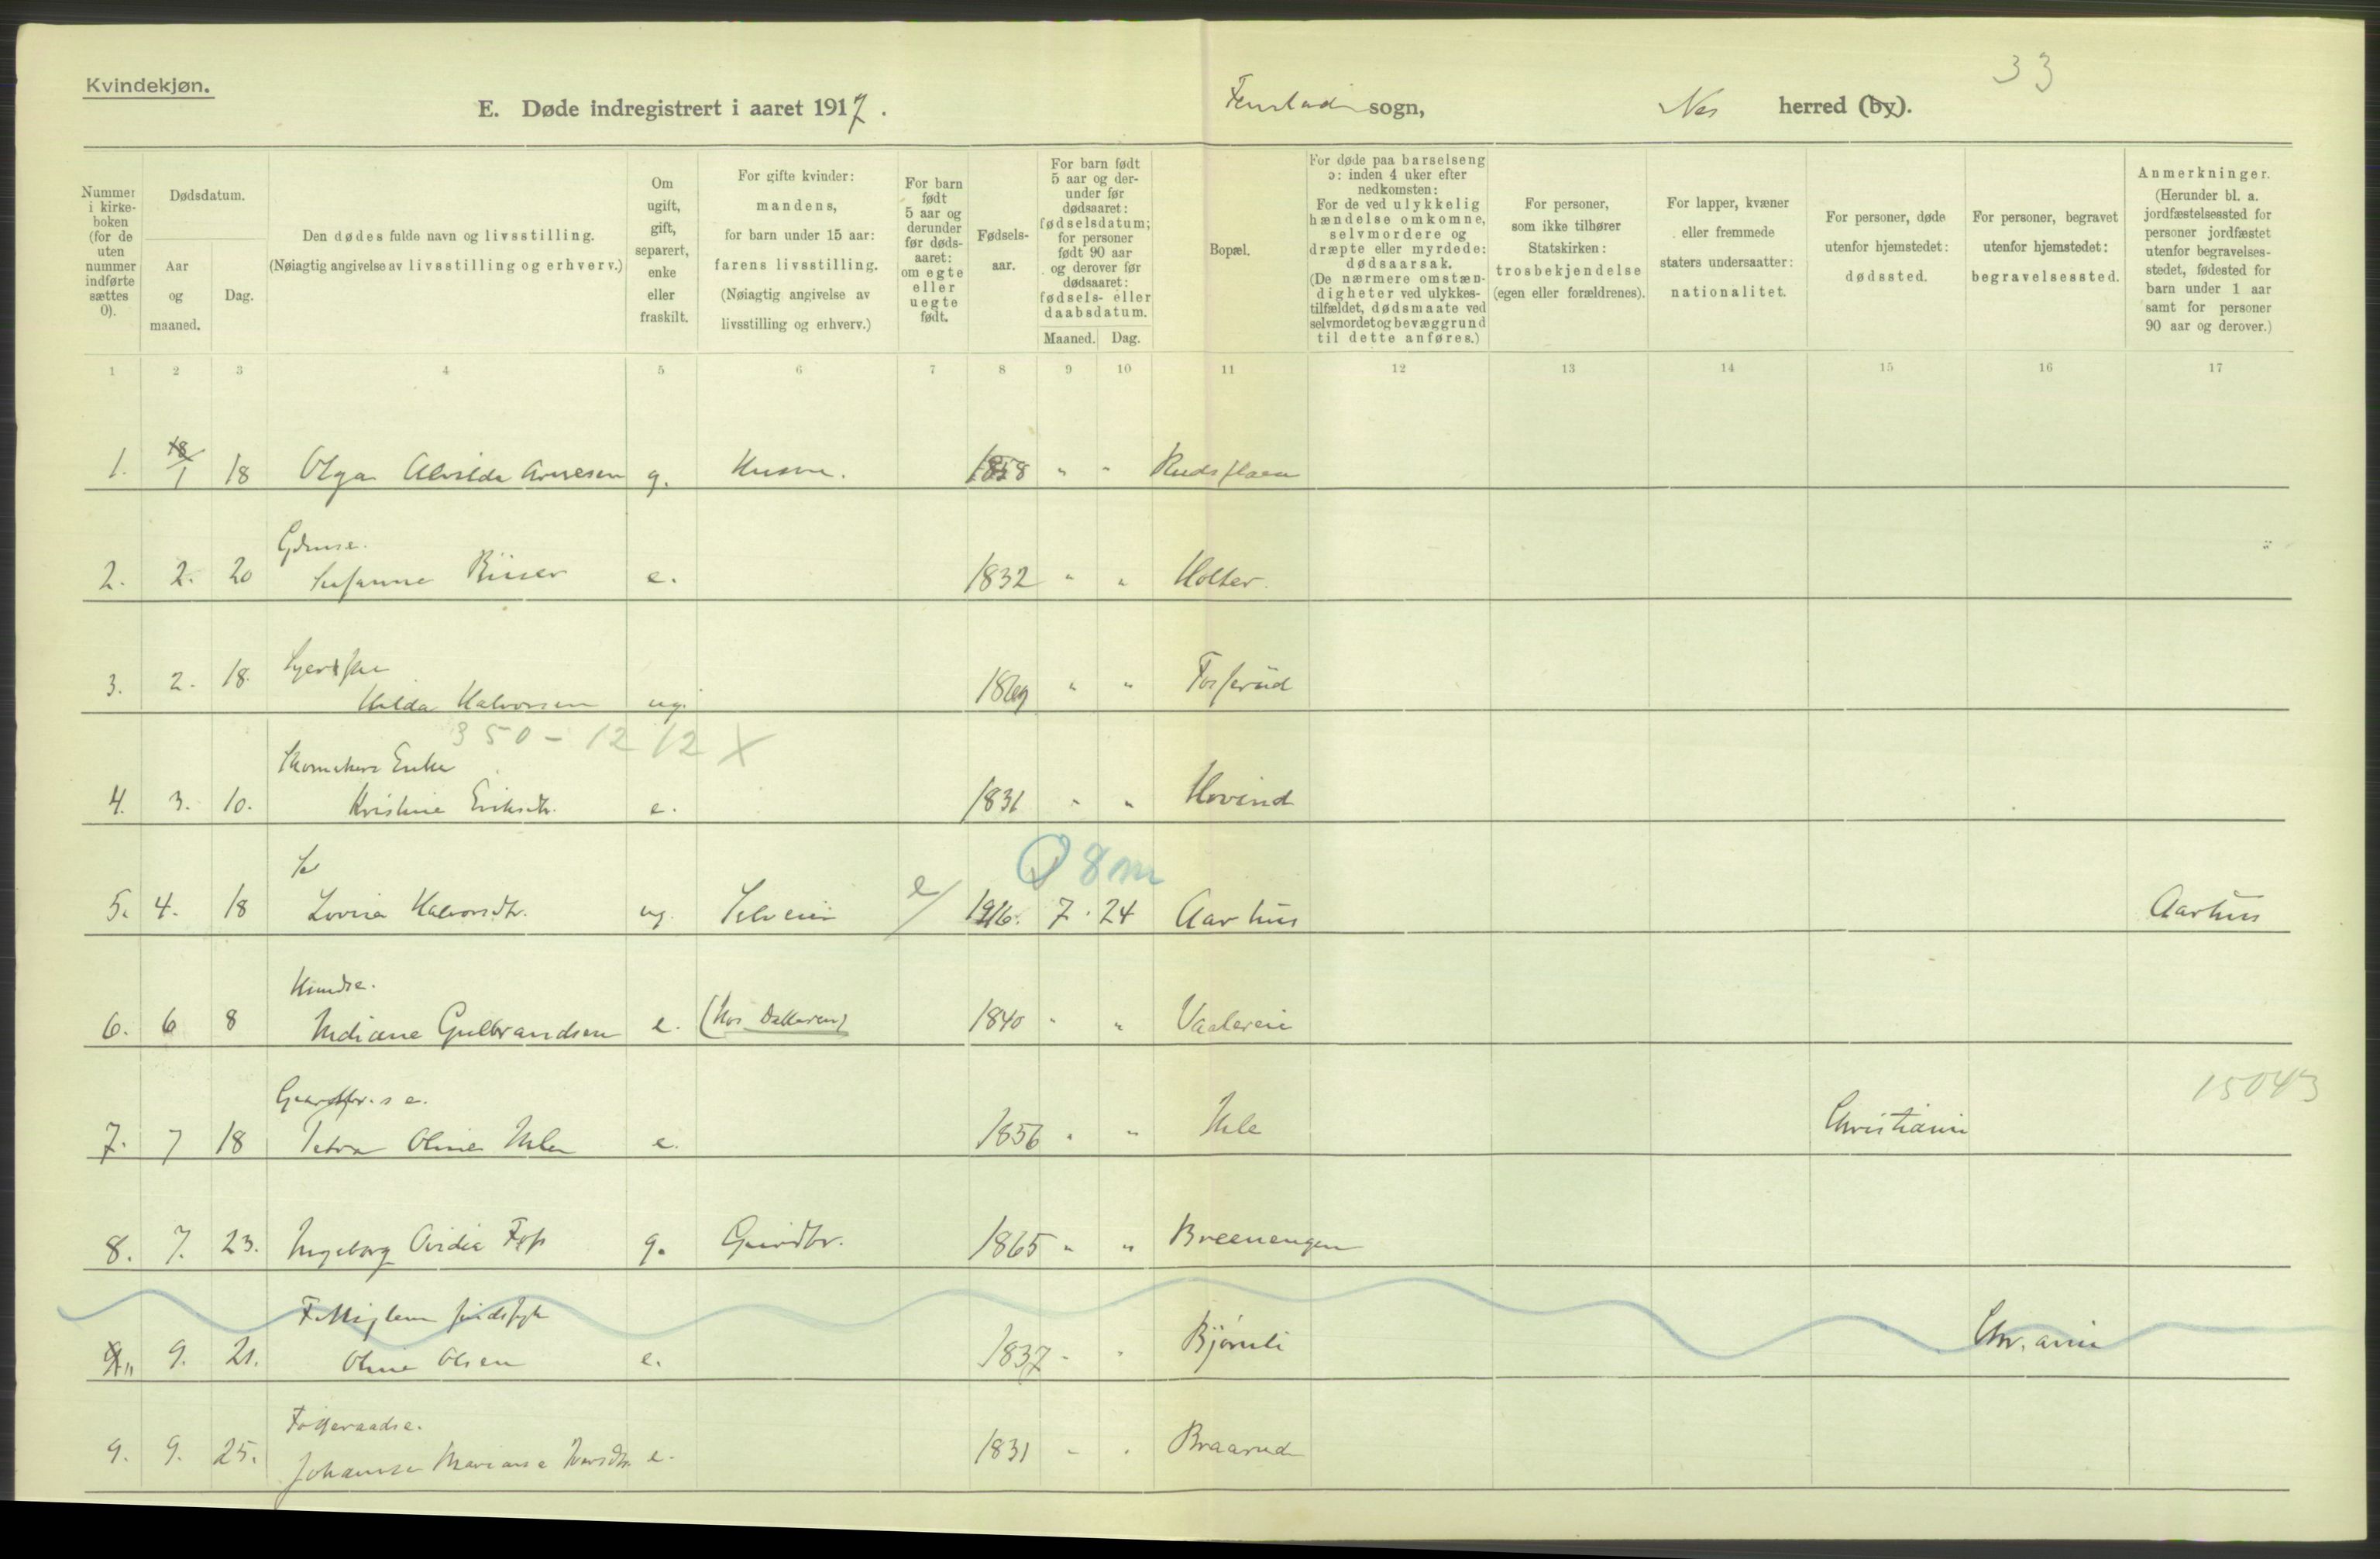 33
Kvindekjøn.
E. Døde indregistrert i aaret 1917. Fenstad sogn, Nes herred (by).
Nummer i kirkeboken (for de uten nummer indførte sættes 0).
Dødsdatum.
Aar og maaned.
Dag.
Den dødes fulde navn og livsstilling.
(Nøiagtig angivelse av livsstilling og erhverv.)
Om ugift, gift, separert, enke eller fraskilt.
For gifte kvinder: mandens, for barn under 15 aar: farens livsstilling.
(Nøiagtig angivelse av livsstilling og erhverv.)
For barn født 5 aar og derunder før dødsaaret: om egte eller uegte født.
Fødselsaar.
For barn født 5 aar og derunder før dødsaaret: fødselsdatum; for personer født 90 aar og derover før dødsaaret: fødsels- eller daabsdatum.
Maaned. Dag.
Bopæl.
For døde paa barselseng ɔ: inden 4 uker efter nedkomsten:
For de ved ulykkelig hændelse omkomne, selvmordere og dræpte eller myrdede: dødsaarsak.
(De nærmere omstændigheter ved ulykkestilfældet, dødsmaate ved selvmordet og bevæggrund til dette anføres.)
For personer, som ikke tilhører Statskirken: trosbekjendelse (egen eller forældrenes).
For lapper, kvæner eller fremmede staters undersaatter: nationalitet.
For personer, døde utenfor hjemstedet: dødssted.
For personer, begravet utenfor hjemstedet: begravelsessted.
Anmerkninger.
(Herunder bl. a. jordfæstelsessted for personer jordfæstet utenfor begravelsesstedet, fødested for barn under 1 aar samt for personer 90 aar og derover.)
1 2 3 4 5 6 7 8 9 10 11 12 13 14 15 16 17
1. 18/1 18 Olga Alvilda g. 1858 " "
2. 2. 20 Susanne e. 1832 " " Holter.
3. 2. 18.
Hilda Halvorsen ug. 1869 " " Fosserud
350 - 12 12 X
Skomakers Enke
4. 3. 10. Kristine Eriksdtr. e. 1831 " " Hovind
8 m
5. 4. 18 Lovisa Halvorsdtr. ug. Selveier e/ 1916. 7. 24 Aarhus Aarhus
6. 6 8 Gulbrandsen e. 1840 " " Vaalereie
15043
7. 7 18 Petra Oline e. 1856 " " Christiania
8. 7. 23. Ingeborg Foss g. Gaardbr. 1865 " "
9. 21. Oline Olsen e. 1837 " " Bjørnli Chr.ania
Føderaadse.
9. 9. 25. e. 1831 " " Braarud